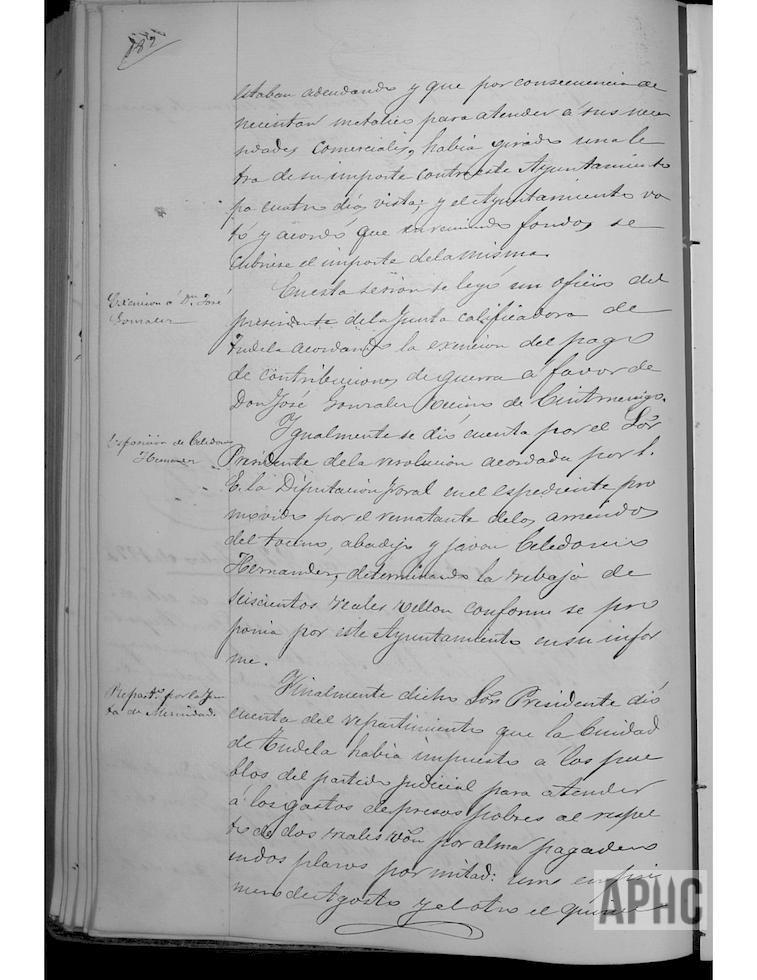 estaban adeudando y que por consecuencia de
necesitar metalico para atender á sus nece
sidades comerciales, habia girado una le
tra de su importe contra este Ayuntamiento
pa cuatro dias vista; y el Ayuntamiento vo
tó y acordó que en reuniendo fondos se
cubriese el importe de la misma.
En esta sesion se leyó un oficio del
Exencion á Dn. José
Gonzalez
presidente de la Junta calificadora de
Tudela acordando la exencion del pago
de contribuciones de guerra á favor de
Don José Gonzalez vecino de Cintruenigo.
Igualmente se dió cuenta por el Sor
Esposicion de Celedonio
Hernandez
Presidente de la resolucion acordada por S.
E. la Diputacion foral en el espediente pro
movido por el rematante de los arriendos
del tocino, abadejo y jabon Celedonio
Hernandez, determinando la rebaja de
seiscientos reales vellon conforme se pro
ponia por este Ayuntamiento en su infor
me.
Finalmente dicho Sor Presidente dió
Repartº. por la Jun
ta de Merindad.
cuenta del repartimiento que la Ciudad
de Tudela habia impuesto á los pue
blos del partido judicial para atender
á los gastos de presos pobres al respec
to de dos reales von por alma pagaderos
en dos plazos por mitad: uno en pri
mero de Agosto y el otro el quin
APHC